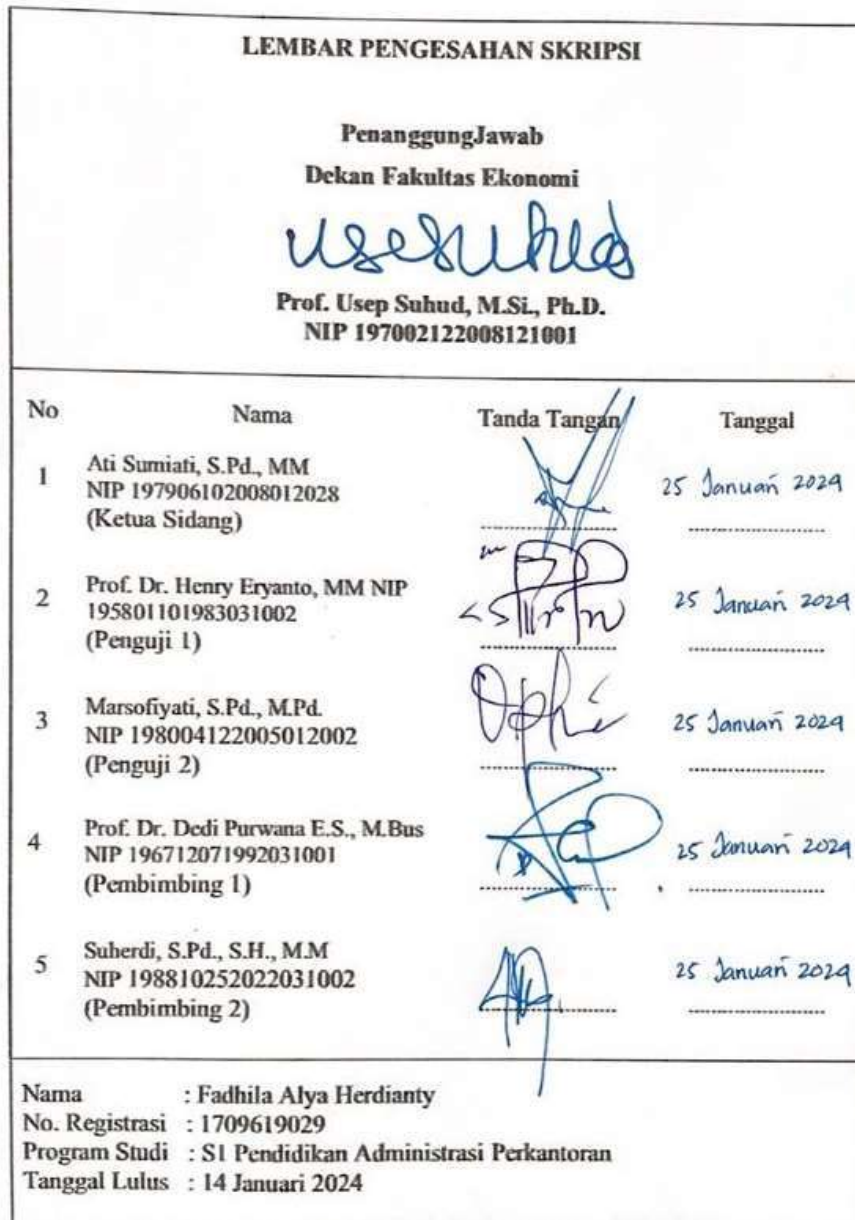 LEMBAR PENGESAHAN SKRIPSI
PenanggungJawab
Dekan Fakultas Ekonomi
Prof. Usep Suhud, M.Si., Ph.D.
NIP 197002122008121001
No Nama Tanda Tangan Tanggal
1 Ati Sumiati, S.Pd., MM
NIP 197906102008012028
(Ketua Sidang)
25 Januari 2024
2 Prof. Dr. Henry Eryanto, MM NIP
195801101983031002
(Penguji 1)
25 Januari 2024
3 Marsofiyati, S.Pd., M.Pd.
NIP 198004122005012002
(Penguji 2)
25 Januari 2024
4 Prof. Dr. Dedi Purwana E.S., M.Bus
NIP 196712071992031001
(Pembimbing 1)
25 Januari 2024
5 Suherdi, S.Pd., S.H., M.M
NIP 198810252022031002
(Pembimbing 2)
25 Januari 2024
Nama : Fadhila Alya Herdianty
No. Registrasi : 1709619029
Program Studi : S1 Pendidikan Administrasi Perkantoran
Tanggal Lulus : 14 Januari 2024